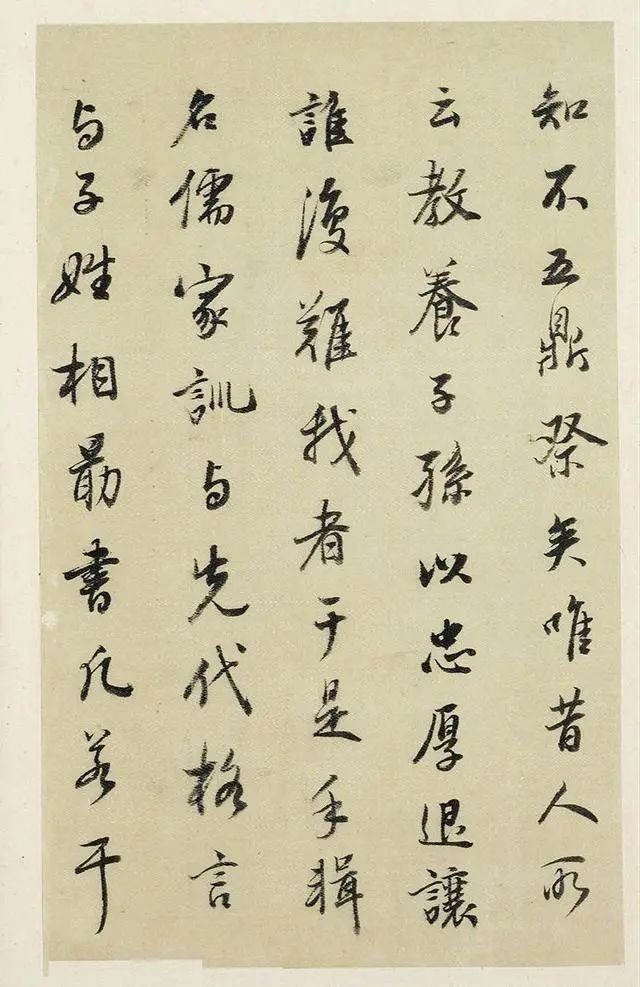 知不五鼎祭矣唯昔人所
云教養子孫以忠厚退讓
誰復難我者于是手輯
名儒家訓与先代格言
与子姓相勖書凡若干